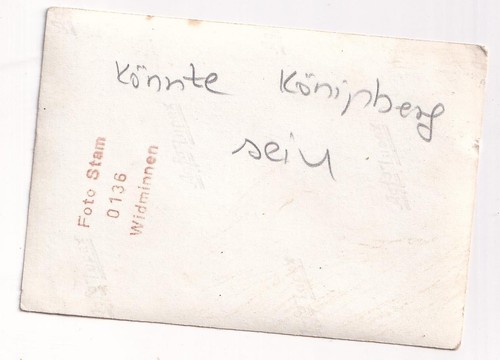 könnte Königsberg
sein
Foto Stam
0136
Widminnen